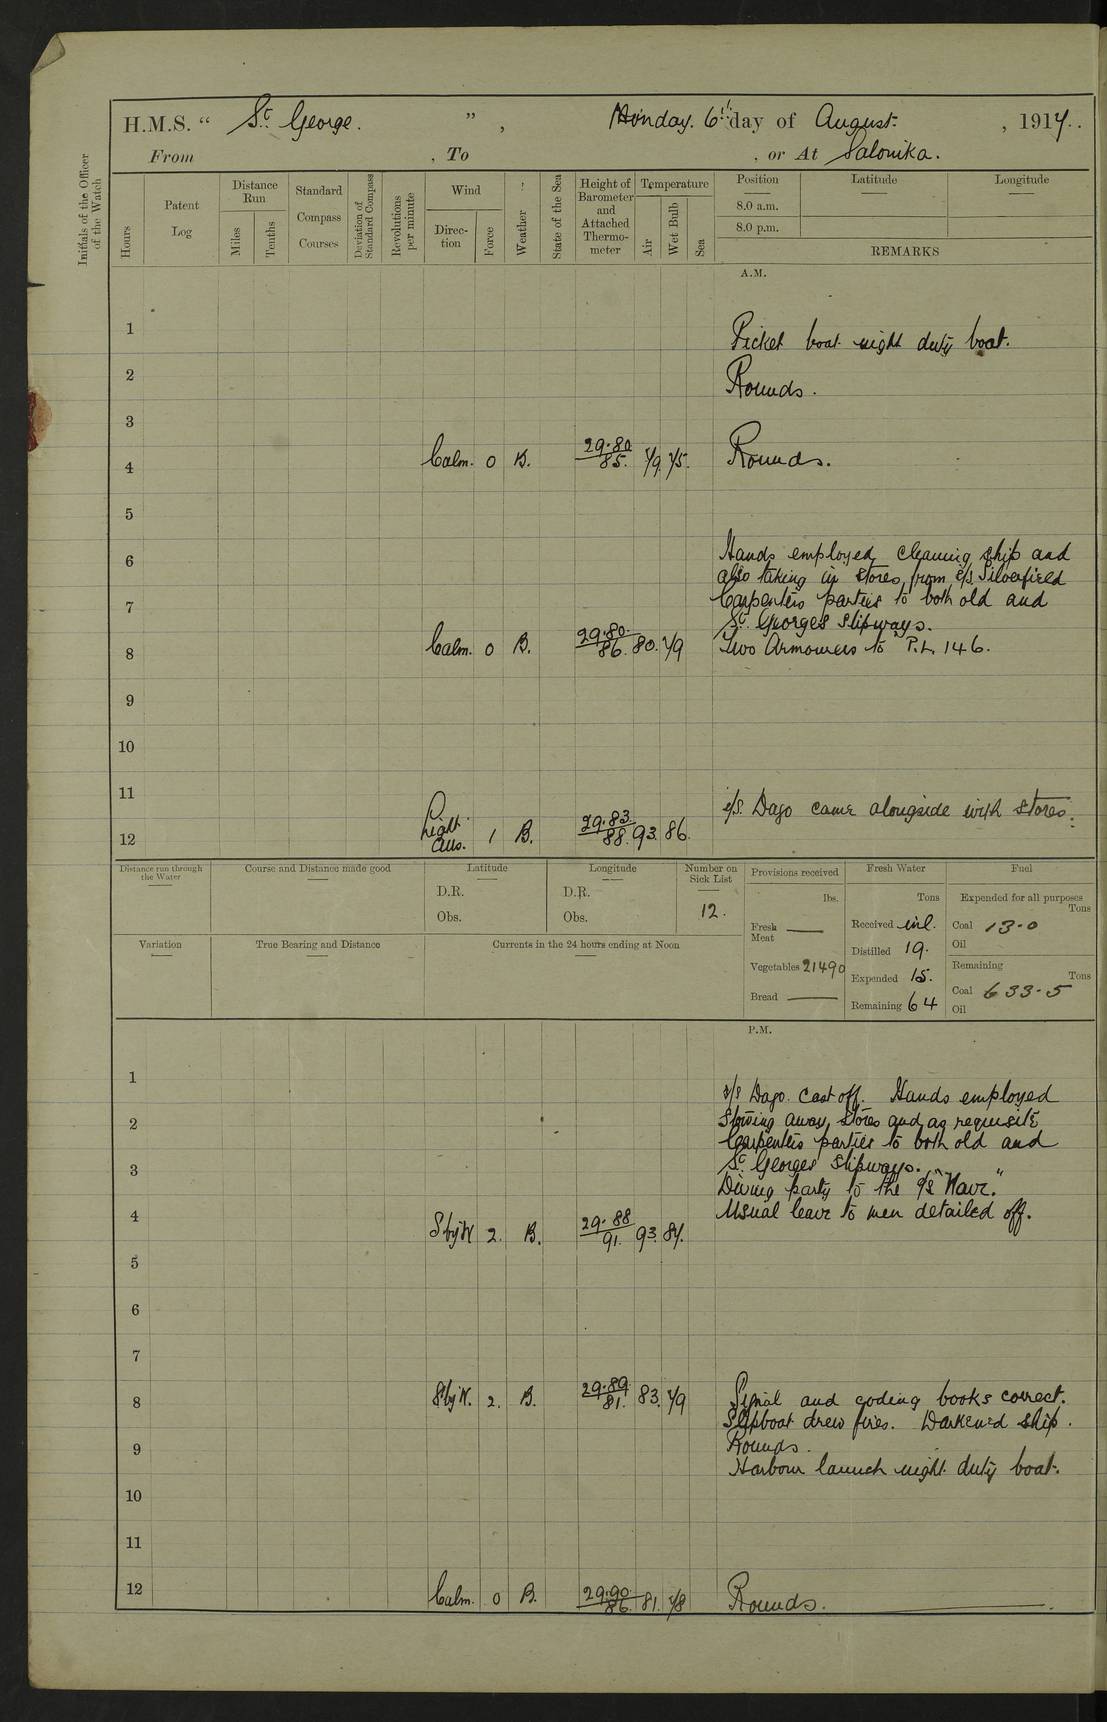 H.M.S. “ St George. ” , Monday. 6th day of August. , 1917.
From , To , or At Salonika.
Initials of the Officer of the Watch
Hours
Patent Log
Distance Run
Miles
Tenths
Standard Compass Courses
Deviation of Standard Compass
Revolutions per minute
Wind
Direction
Force
Weather
State of the Sea
Height of Barometer and Attached Thermometer
Temperature
Air
Wet Bulb
Sea
Position
8.0 a.m.
8.0 p.m.
Latitude
Longitude
REMARKS
A.M.
1 Picket boat night duty boat.
2 Rounds.
3
4 Calm. 0 B. 29.80 85. 79. 75. Rounds.
5
6 Hands employed cleaning ship and
also taking in stores from s/s. Silverfield
7 Carpenters parties to both old and
St. Georges slipways.
8 Calm. 0 B. 29.80. 86. 80. 79 Two Armourers to P.L. 146.
9
10
11 s/s. Dago came alongside with stores.
12 Light Airs. 1 B. 29.83. 88. 93. 86.
Distance run through the Water
Course and Distance made good
Latitude
D.R.
Obs.
Longitude
D.R.
Obs.
Number on Sick List
12.
Provisions received
lbs.
Fresh Meat ——
Vegetables 21490
Bread ——
Fresh Water
Tons
Received nil.
Distilled 19.
Expended 15.
Remaining 64
Fuel
Expended for all purposes
Tons
Coal 13.0
Oil
Remaining
Tons
Coal 633.5
Oil
Variation
True Bearing and Distance
Currents in the 24 hours ending at Noon
P.M.
1 s/s Dago. Cast off. Hands employed
2 Stowing away stores and as requisite
Carpenters parties to both old and
3 St Georges slipways.
Diving party to the
4 Usual leave to men detailed off.
S by W 2. B. 29.88 91. 93. 84.
5
6
7
8 S by W. 2. B. 29.89 81. 83. 79 Signal and coding books correct.
Slipboat drew fires. Darkened ship.
9 Rounds.
Harbour launch night duty boat.
10
11
12 Calm. 0 B. 29.90. 86. 81. 78 Rounds.